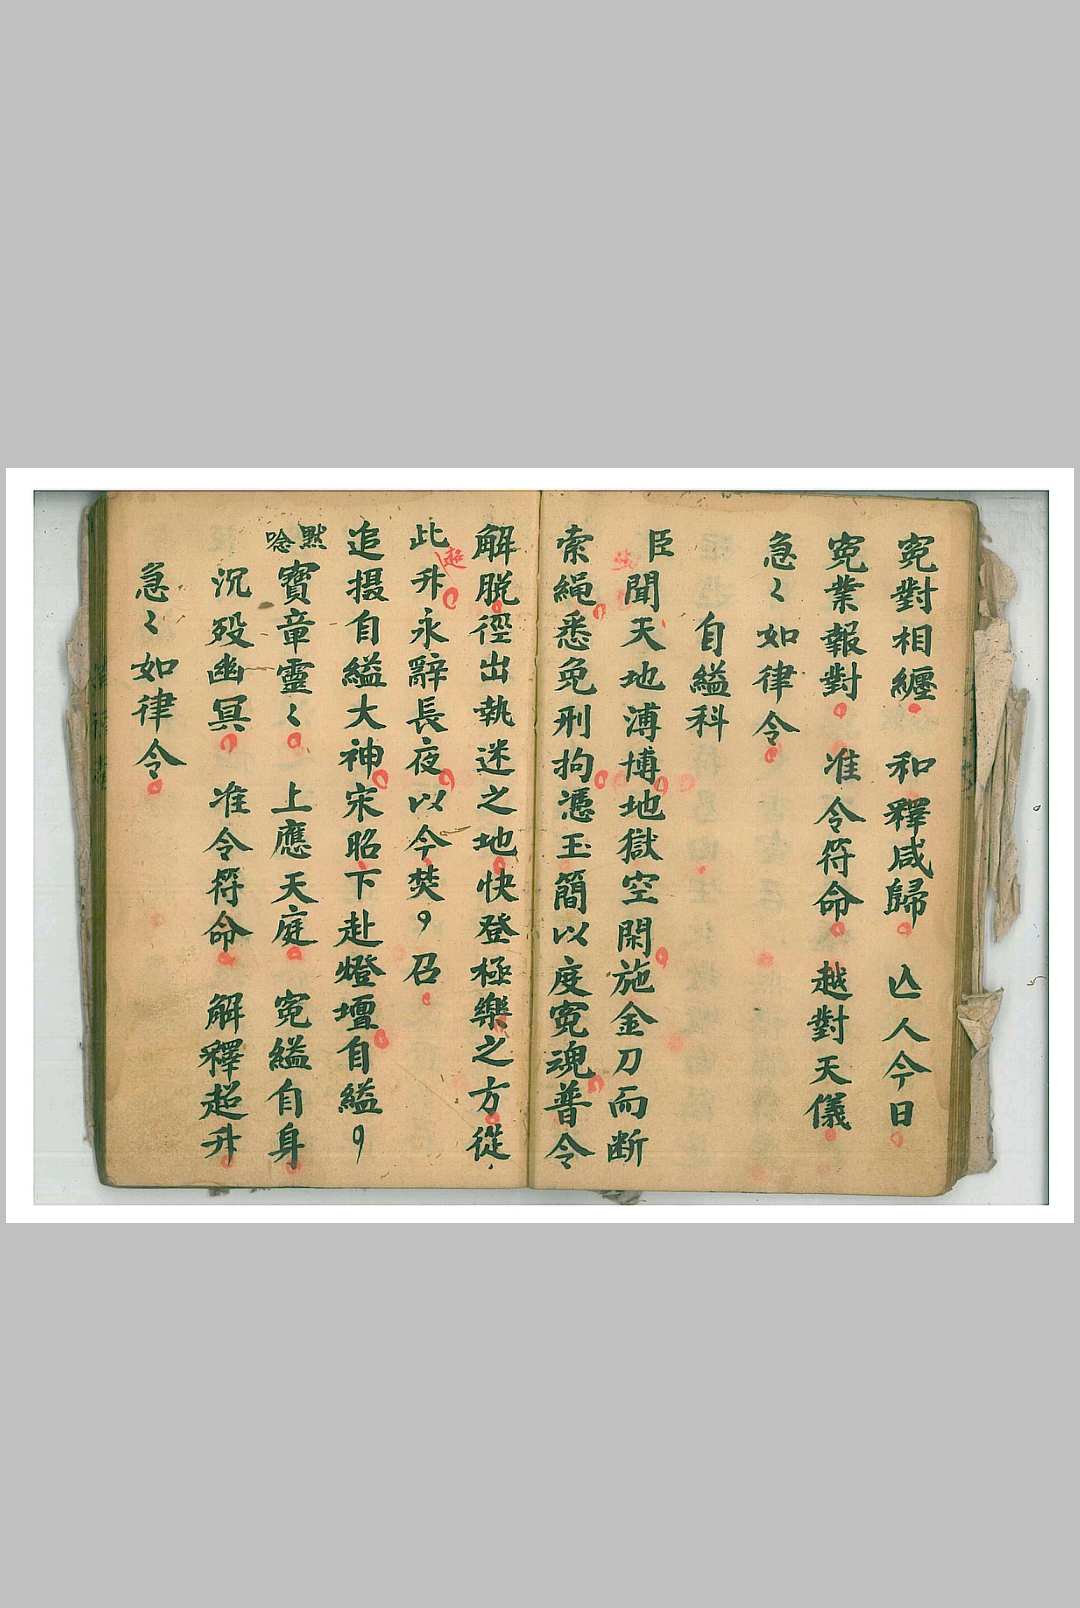 寃對相纏和釋咸歸亾人今日
寃業報對准令符命越對天儀
急〻如律令
自縊科
臣聞天地溥博地獄空閑施金刀而断
索繩悉免刑拘憑玉簡以度寃魂普令
解脱徑出執迷之地快登極樂之方從
此升永辭長夜以今焚〻召
超
追摄自縊大神宋昭下赴燈壇自縊〻
默唸
寳章靈〻上應天庭寃縊自身
沉殁幽冥准令符命解釋超升
急〻如律令